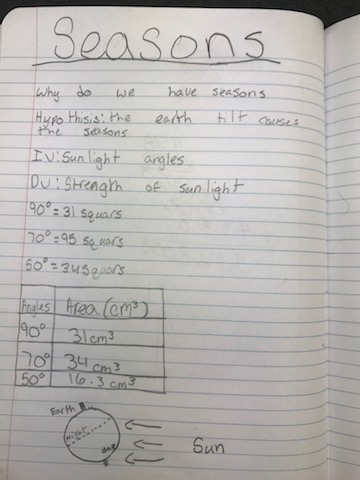 Seasons
Why do we have seasons
Hypo thisis: the earth tilt causes
the seasons
IV: Sunlight angles
DV: Strength of sunlight
90° = 31 squars
70° = 95 squars
50° = 34 squars
Angles Area (cm³)
90° 31 cm³
70° 34 cm³
50° 16.3 cm³
Earth
Night
day
Sun